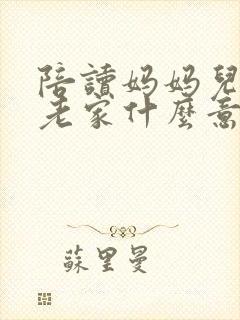 陪讀媽媽兒
老家什麼意
蘇里曼